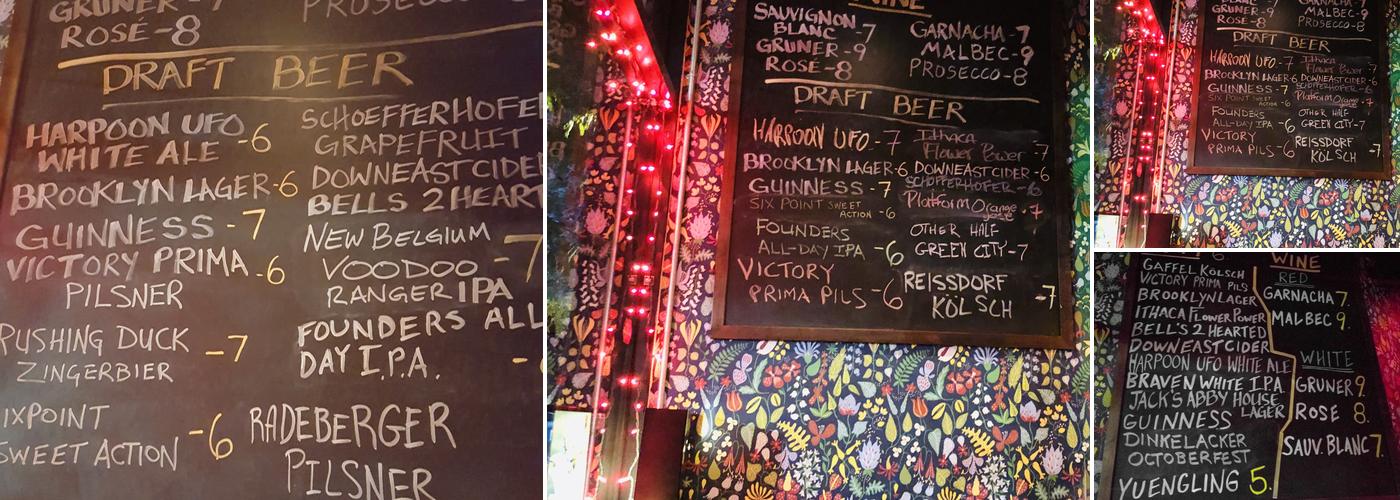 GRUNER-9 PROSECCO-8
ROSÉ-8
DRAFT BEER
HARPOON UFO
WHITE ALE -6
BROOKLYN LAGER-6
GUINNESS -7
VICTORY PRIMA -6
PILSNER
RUSHING DUCK -7
ZINGERBIER
IXPOINT
SWEET ACTION -6
SCHOEFFERHOFE
GRAPEFRUIT
DOWNEASTCIDE
BELLS 2HEART
NEW BELGIUM
VOODOO -7
RANGER IPA
FOUNDERS ALL
DAY I.P.A.
RADEBERGER
PILSNER
WINE
SAUVIGNON
BLANC -7
GRUNER-9
ROSÉ-8
GARNACHA-7
MALBEC-9
PROSECCO-8
DRAFT BEER
HARPOON UFO-7
BROOKLYN LAGER-6
GUINNESS-7
SIX POINT SWEET
ACTION -6
FOUNDERS
ALL-DAY IPA -6
VICTORY
PRIMA PILS-6
Ithaca
Flower Power -7
DOWNEASTCIDER-6
SCHOFFERHOFER-6
Platform Orange -7
OTHER HALF
GREEN CITY-7
REISSDORF
KÖLSCH -7
BLANC -7
GRUNER-9
ROSÉ-8
MALBEC-9
PROSECCO-8
DRAFT BEER
HARPOON UFO-7
BROOKLYN LAGER-6
GUINNESS-7
SIX POINT SWEET
ACTION -6
FOUNDERS
ALL-DAY IPA -6
VICTORY
PRIMA PILS-6
Ithaca
Flower Power-7
DOWNEASTCIDER-6
SCHOFFERHOFER-6
Platform Orange -7
OTHER HALF
GREEN CITY-7
REISSDORF
KÖLSCH -7
GAFFEL KÖLSCH
VICTORY PRIMA PILS
BROOKLYN LAGER
ITHACA FLOWER POWER
BELL'S 2 HEARTED
DOWNEAST CIDER
HARPOON UFO WHITE ALE
BRAVEN WHITE I.P.A.
JACK'S ABBY HOUSE
LAGER
GUINNESS
DINKELACKER
OCTOBERFEST
YUENGLING 5.
WINE
RED
GARNACHA 7.
MALBEC 9.
WHITE
GRUNER 9.
ROSE 8.
SAUV. BLANC 7.